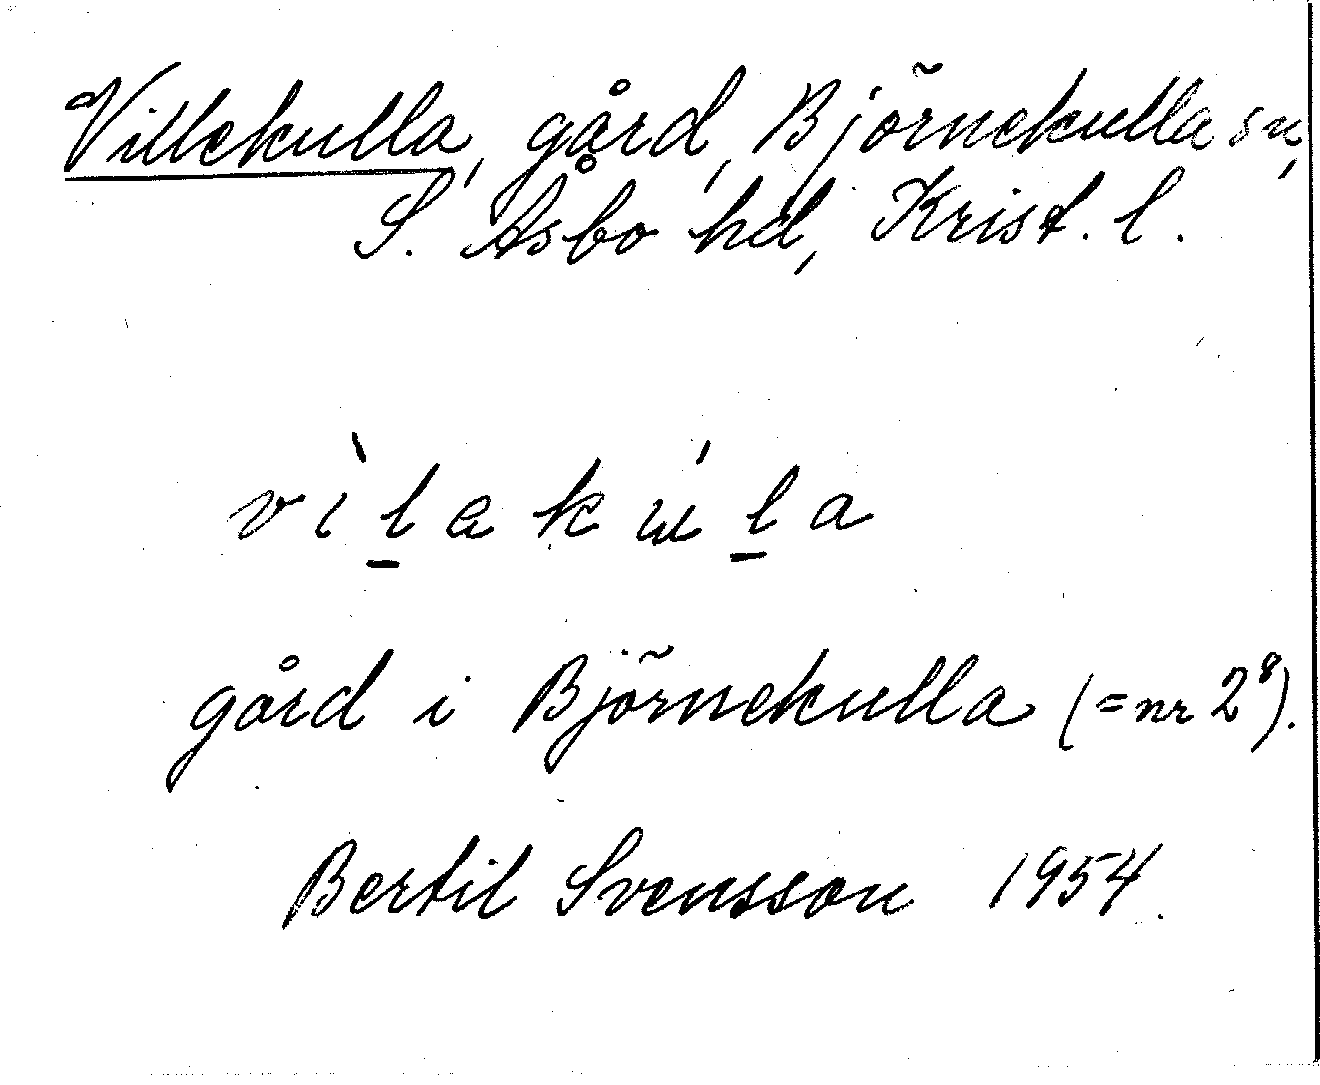 Villekulla, gård, Björnekulla sn,
S. Åsbo hd, Krist. l.
vìlakúla
gård i Björnekulla (= nr 2⁸).
Bertil Svensson 1954.